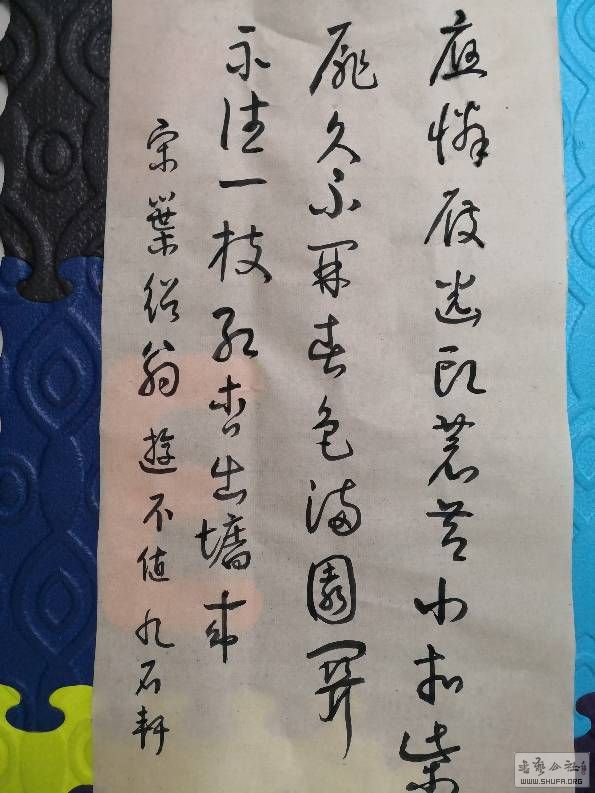 應憐屐齒印蒼苔小扣柴
扉久不開春色滿園關
不住一枝紅杏出墻來
宋葉紹翁遊不值 九石軒
書藝公社
WWW.SHUFA.ORG